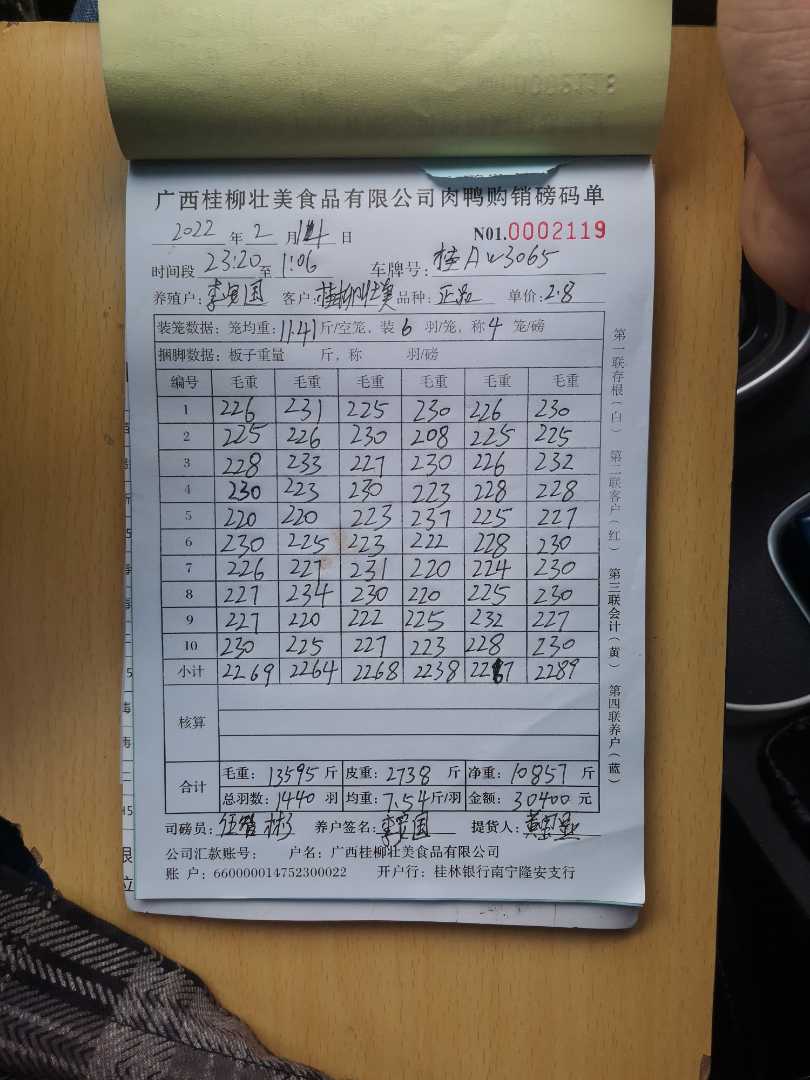 广西桂柳壮美食品有限公司肉鸭购销磅码单
2022 年 2 月 14 日 N01.0002119
时间段 23:20 至 1:06 车牌号: 桂AW3065
养殖户: 李 国 客户: 桂柳壮美 品种: 正品 单价: 2.8
装笼数据: 笼均重: 11.41 斤/空笼, 装 6 羽/笼, 称 4 笼/磅
捆脚数据: 板子重量 斤, 称 羽/磅
编号 毛重 毛重 毛重 毛重 毛重 毛重
1 226 231 225 230 226 230
2 225 226 230 208 225 225
3 228 233 227 230 226 232
4 230 223 230 223 228 228
5 220 220 223 237 225 227
6 230 225 223 222 228 230
7 226 227 231 220 224 230
8 227 234 230 220 225 230
9 227 220 222 225 232 227
10 230 225 227 223 228 230
小计 2269 2264 2268 2238 2267 2289
核算
合计 毛重: 13595 斤 皮重: 2738 斤 净重: 10857 斤
总羽数: 1440 羽 均重: 7.54 斤/羽 金额: 30400 元
司磅员: 伍 彬 养户签名: 李 国 提货人: 黄
公司汇款账号: 户名: 广西桂柳壮美食品有限公司
账 户: 660000014752300022 开户行: 桂林银行南宁隆安支行
第一联存根(白) 第二联客户(红) 第三联会计(黄) 第四联养户(蓝)